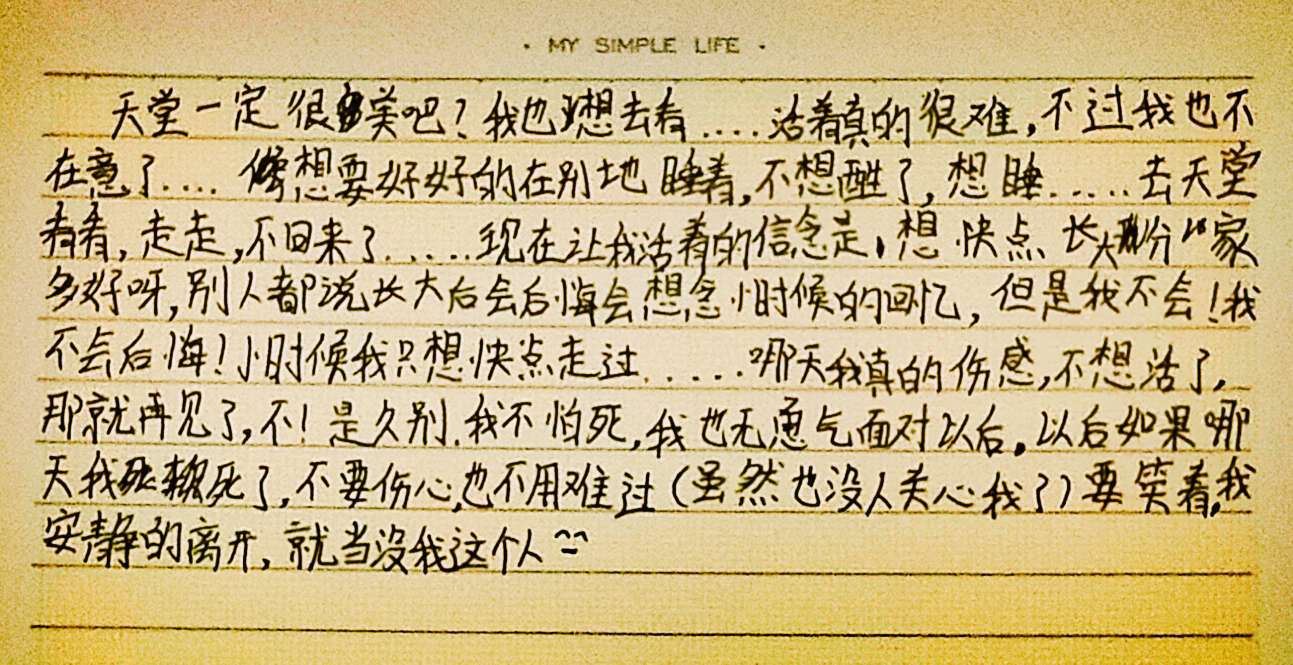 · MY SIMPLE LIFE ·
天堂一定很美吧?我也想去看....活着真的很难,不过我也不
在意了....想要好好的在别地睡着,不想醒了,想睡.....去天堂
看看,走走,不回来了.....现在让我活着的信念是,想快点长大 分 家
多好呀,别人都说长大后会后悔会想念小时候的回忆,但是我不会!我
不会后悔!小时候我只想快点走过.....哪天我真的伤感,不想活了,
那就再见了,不!是久别.我不怕死,我也无勇气面对以后。以后如果哪
天我死了,不要伤心,也不用难过(虽然也没人关心我了)要笑着,我
安静的离开,就当没我这个人